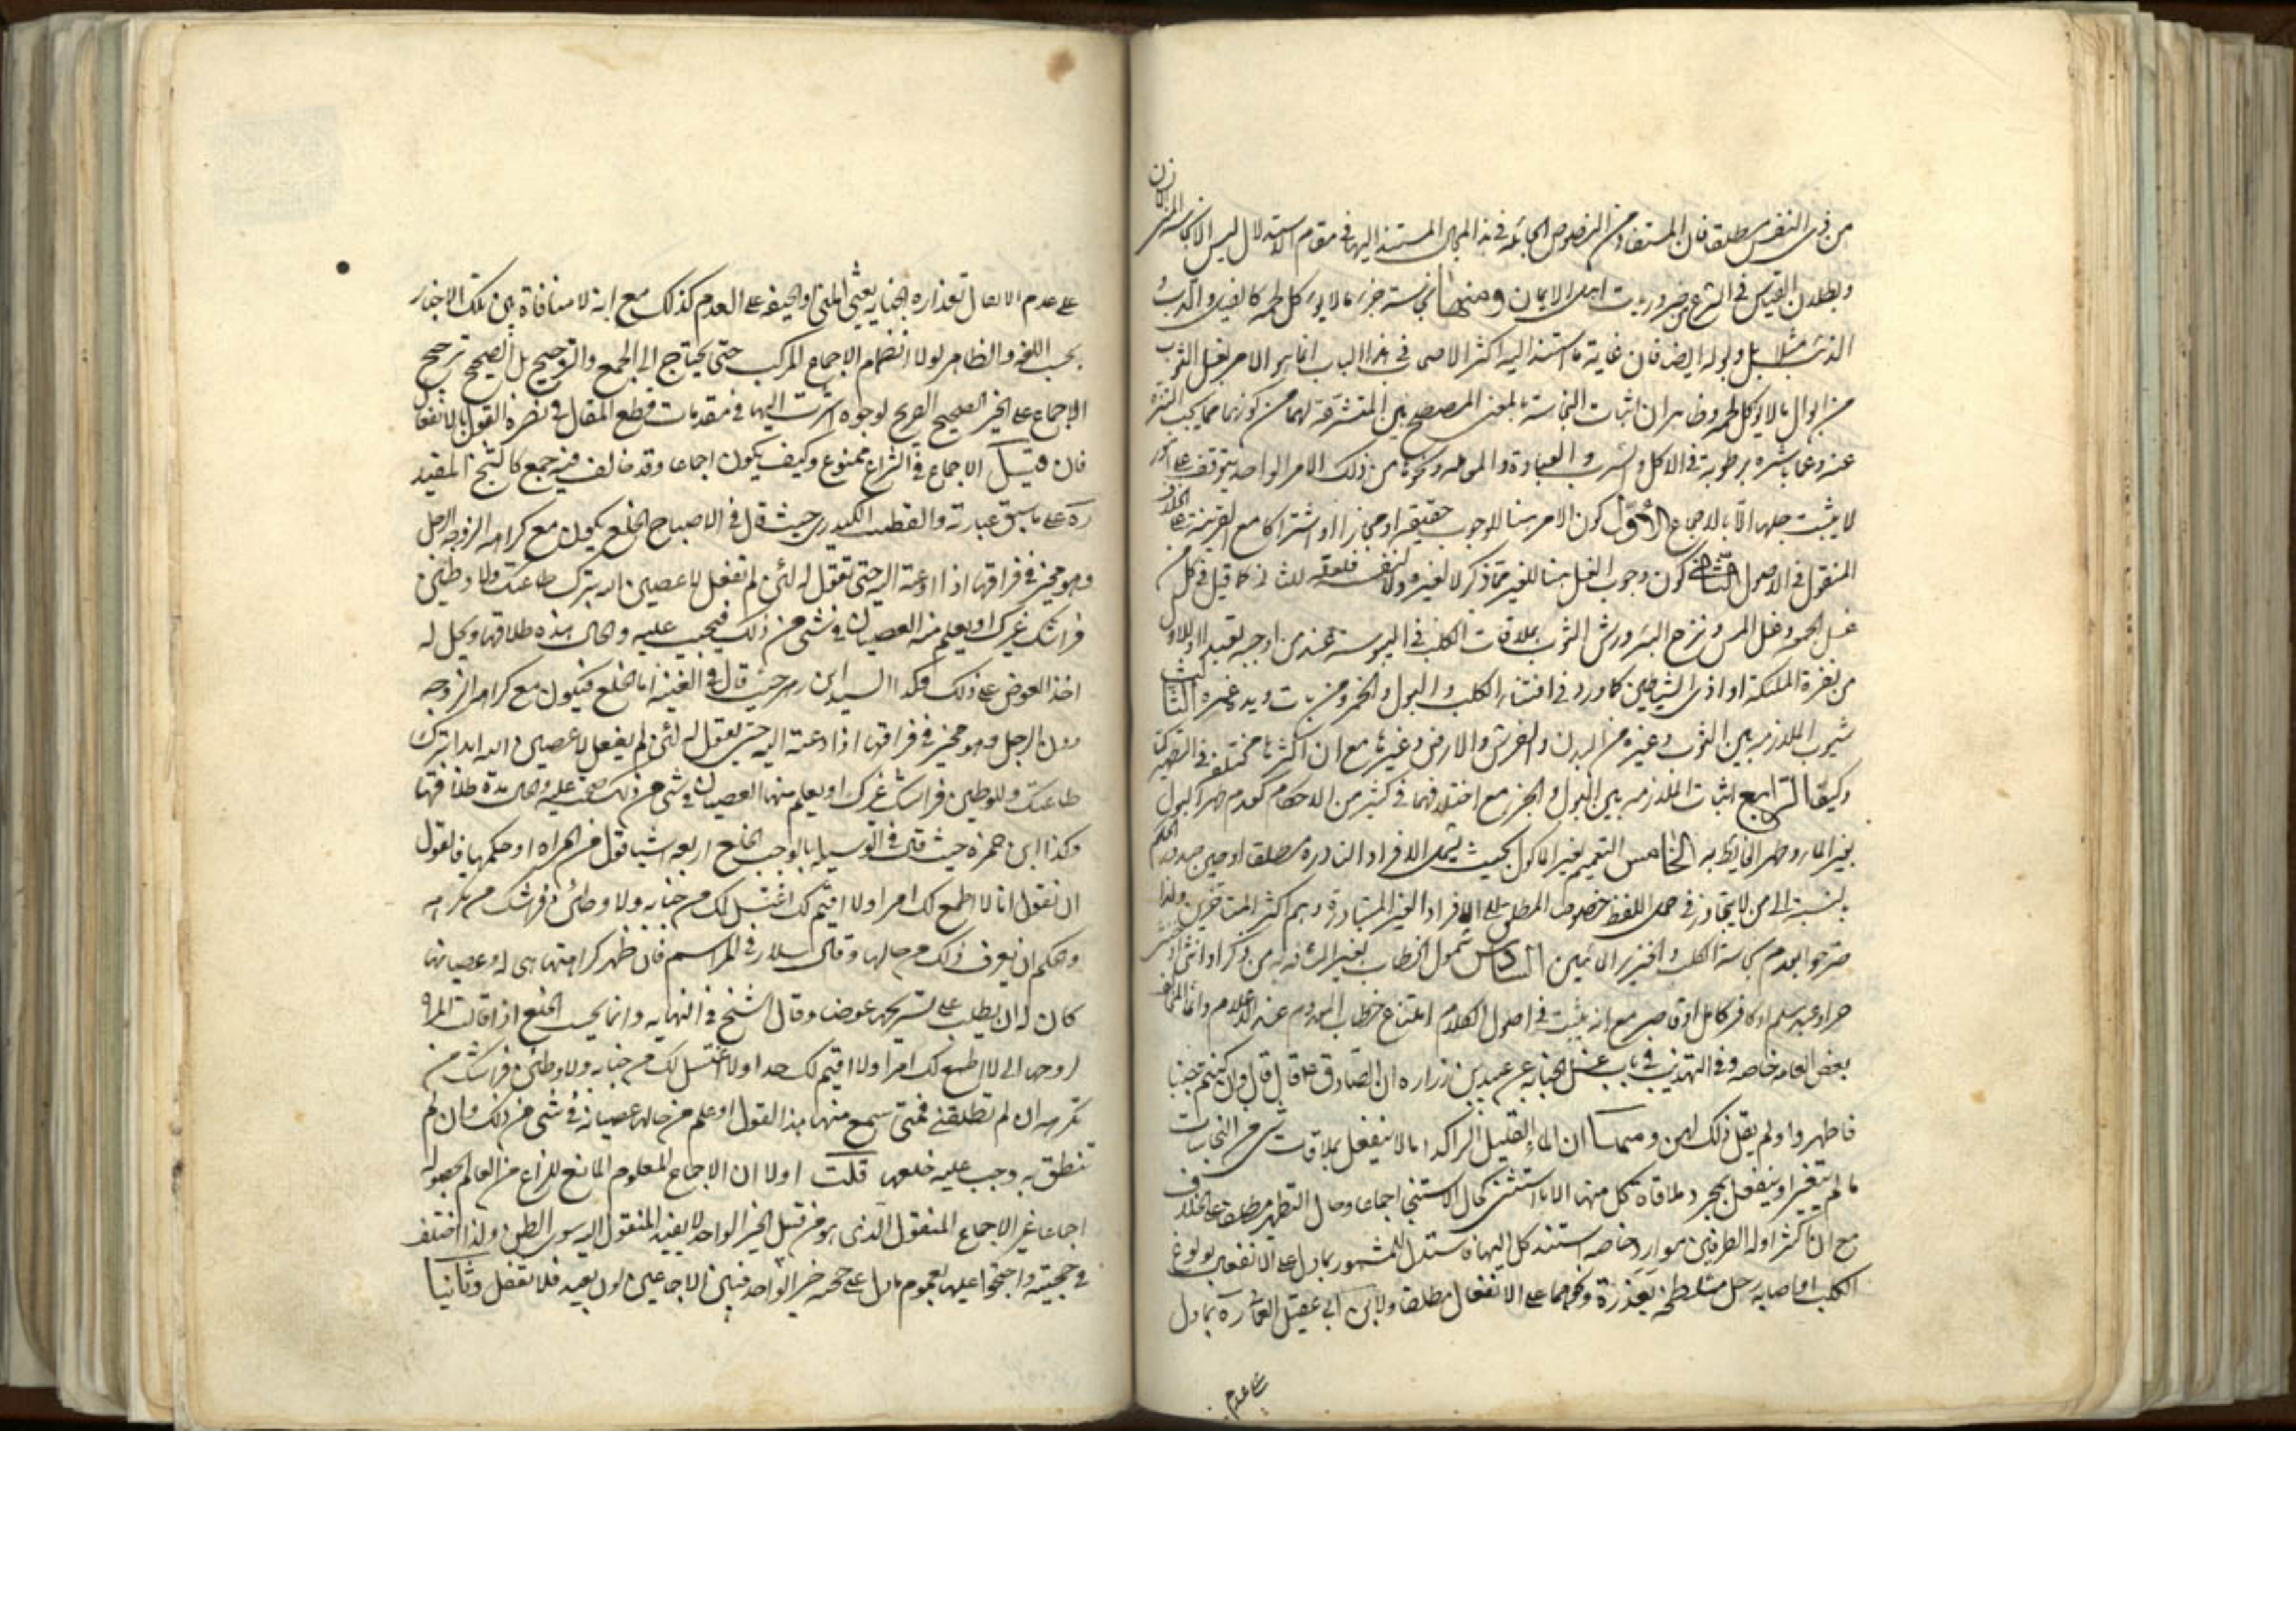 من ذى النفس مطلقا فان المستفاد من النصوص الخاصة فى هذا المجال المستند اليها فى مقام الاستدلال ليس الا نجاسة المنى
وبطلان القياس فى الشرع من ضروريات اهل الايمان ومنها نجاسة خرء ما لا يؤكل لحمه كالفيل والدب و
الذئب مثلا بل وبوله ايضا فان غاية ما استند اليه اكثر الاصحاب فى هذا الباب انما هو الامر بغسل الثوب
من ابوال ما لا يؤكل لحمه وظاهر ان اثبات النجاسة بالمعنى المصطلح بين المتشرعة لهما من كونهما مما يجب التنزه
عنه وعما باشره برطوبة فى الاكل والشرب والعبادة والمعاملة ونحوها من ذلك الامر الواحد يتوقف على امور
لا يثبت جلها الا بالاجماع الاول كون الامر هنا للوجوب حقيقة او مجازا او اشتراكا مع القرينة على الخلاف
المنقول فى الاصول الثانى كون وجوب الغسل هنا للغير مما ذكر لا لغيره ولا لنفسه كما قيل فى كل من
غسل الجمعة وغسل المس ونزح البئر ورش الثوب بملاقات الكلب فى اليبوسة عند من اوجبه
من نفرة الملئكة او اذى الشياطين كما ورد فى اقتناء الكلب والبول والخمر الثالث
ثبوت الملازمة بين الثوب وغيره من البدن والفرش والارض وغيرها مع ان اكثرها مختلفة فى التطهير كما
وكيفا الرابع اثبات الملازمة بين البول والخرء مع اختلافهما فى كثير من الاحكام كعدم طهر البول
بغير الماء وطهر الغايط به الخامس التعميم لغير الماكول بحيث يشمل الافراد النادرة مطلقا او حين صدور الحكم
بالنسبة الى من لا يتجاوز فى حمل اللفظ خصوص المطلق على الافراد الغير المتبادرة وهم اكثر المتاخرين ولذا
صرحوا بعدم نجاسة الكلب والخنزير المائيين السادس شمول الخطاب لغير المشافه به من ذكر او انثى
حر او عبد مسلم او كافر كامل او قاصر مع انه يثبت فى اصول الكلام امتناع خطاب المعدوم عند الاعلام وانما المخالف
بعض العامة خاصة وفى التهذيب فى باب غسل الجنابة عن عبيد بن زراره ان الصادق ع قال قال وان كنتم جنبا
فاطهروا ولم يقل ذلك لهن ومنها ان الماء القليل الراكد اما لا ينفعل بملاقات شئ من النجاسات
ما لم يتغير او ينفعل بمجرد ملاقاة كل منها الا ما استثنى كماء الاستنجا اجماعا وحال التطهير مطلقا على الخلاف
مع ان اكثر ادلة الطرفين موارد خاصة استند كل اليها فاستدل للمشهور بما دل على الانفعال بولوغ
الكلب او اصابة رجل متلطخة بعذرة ونحوهما على الانفعال مطلقا ولابن ابى عقيل العمانى ره بما دل
على عدم
على عدم الانفعال بقذارة الجنابة يعنى المنى او الجيفة على العدم كذلك مع انه لا منافاة بين تلك الاخبار
بحسب اللغة والظاهر لولا انضمام الاجماع المركب حتى يحتاج الى الجمع والترجيح بل الصحيح ترجيح
الاجماع على الخبر الصحيح الصريح لوجوه اشرت اليها فى مقدمات قطع المقال فى نصرة القول بالانفعال
فان قيل الاجماع فى الشرع ممنوع وكيف يكون اجماعا وقد خالف فيه جمع كالشيخ المفيد
ره على ما سبق عبارته والقطب الكيدرى حيث قال فى الاصباح الخلع يكون مع كراهة الزوجة الرجل
وهو مخير فى فراقها اذا دعته اليه حتى تقول له لئن لم تفعل لاعصين الله بترك طاعتك ولاوطئن
فراشك غيرك او يعلم منها العصيان فى شئ من ذلك فيجب عليه والحال هذه طلاقها ويحل له
اخذ العوض على ذلك وكذا السيد ابن زهره حيث قال فى الغنية اما الخلع فيكون مع كراهة الزوجة
دون الرجل وهو مخير فى فراقها اذا دعته اليه حتى تقول له لئن لم يفعل لاعصين الله ابدا بترك
طاعتك ولاوطئن فراشك غيرك او يعلم منها العصيان فى شئ من ذلك فيجب عليه والحال هذه طلاقها
وكذا ابن حمزه حيث قال فى الوسيلة ما يوجب الخلع اربعة اشيا قول من المراة او حكمها فالقول
ان تقول انا لا اطيع لك امرا ولا اقيم لك اغتسل لك من جنابه ولاوطئن فراشك من تكرهه
وحكم ان يعرف ذلك من حالها وقال سلار فى المراسم فان ظهر كراهتها هى له وعصيانها
كان له ان يطلب على تسريحها عوضا وقال الشيخ فى النهاية وانما يجب الخلع اذا قالت المراة
لزوجها انى لا اطيع لك امرا ولا اقيم لك حدا ولا اغتسل لك من جنابه ولاوطئن فراشك من
تكرهه ان لم تطلقنى فمتى سمع منها هذا القول او علم من حالها عصيانه فى شئ من ذلك وان لم
تنطق به وجب عليه خلعها قلت اولا ان الاجماع المعلوم المانع للنزاع من العالم بحصوله
اجماعا غير الاجماع المنقول الذى هو من قبيل الخبر الواحد لا يفيد المنقول اليه سوى الظن ولذا اختلف
فى حجيته واحتجوا عليها بعموم ما دل على حجية خبر الواحد فبين الاجماعين بون بعيد فلا تغفل وثانيا